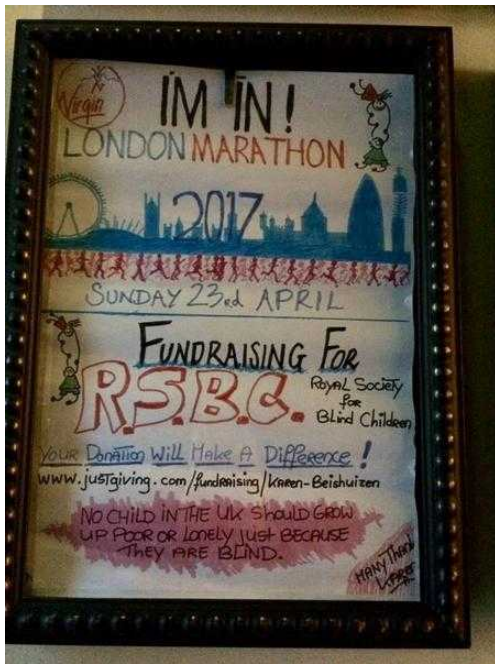 Virgin
I'M IN!
LONDON MARATHON
2017
SUNDAY 23rd APRIL
FUNDRAISING FOR
R.S.B.C.
Royal Society
for
Blind Children
YOUR Donation Will Make A Difference!
www.justgiving.com/fundraising/Karen-Beishuizen
NO CHILD IN THE UK SHOULD GROW
UP POOR OR LONELY JUST BECAUSE
THEY ARE BLIND.
MANY Thanks
KAREN